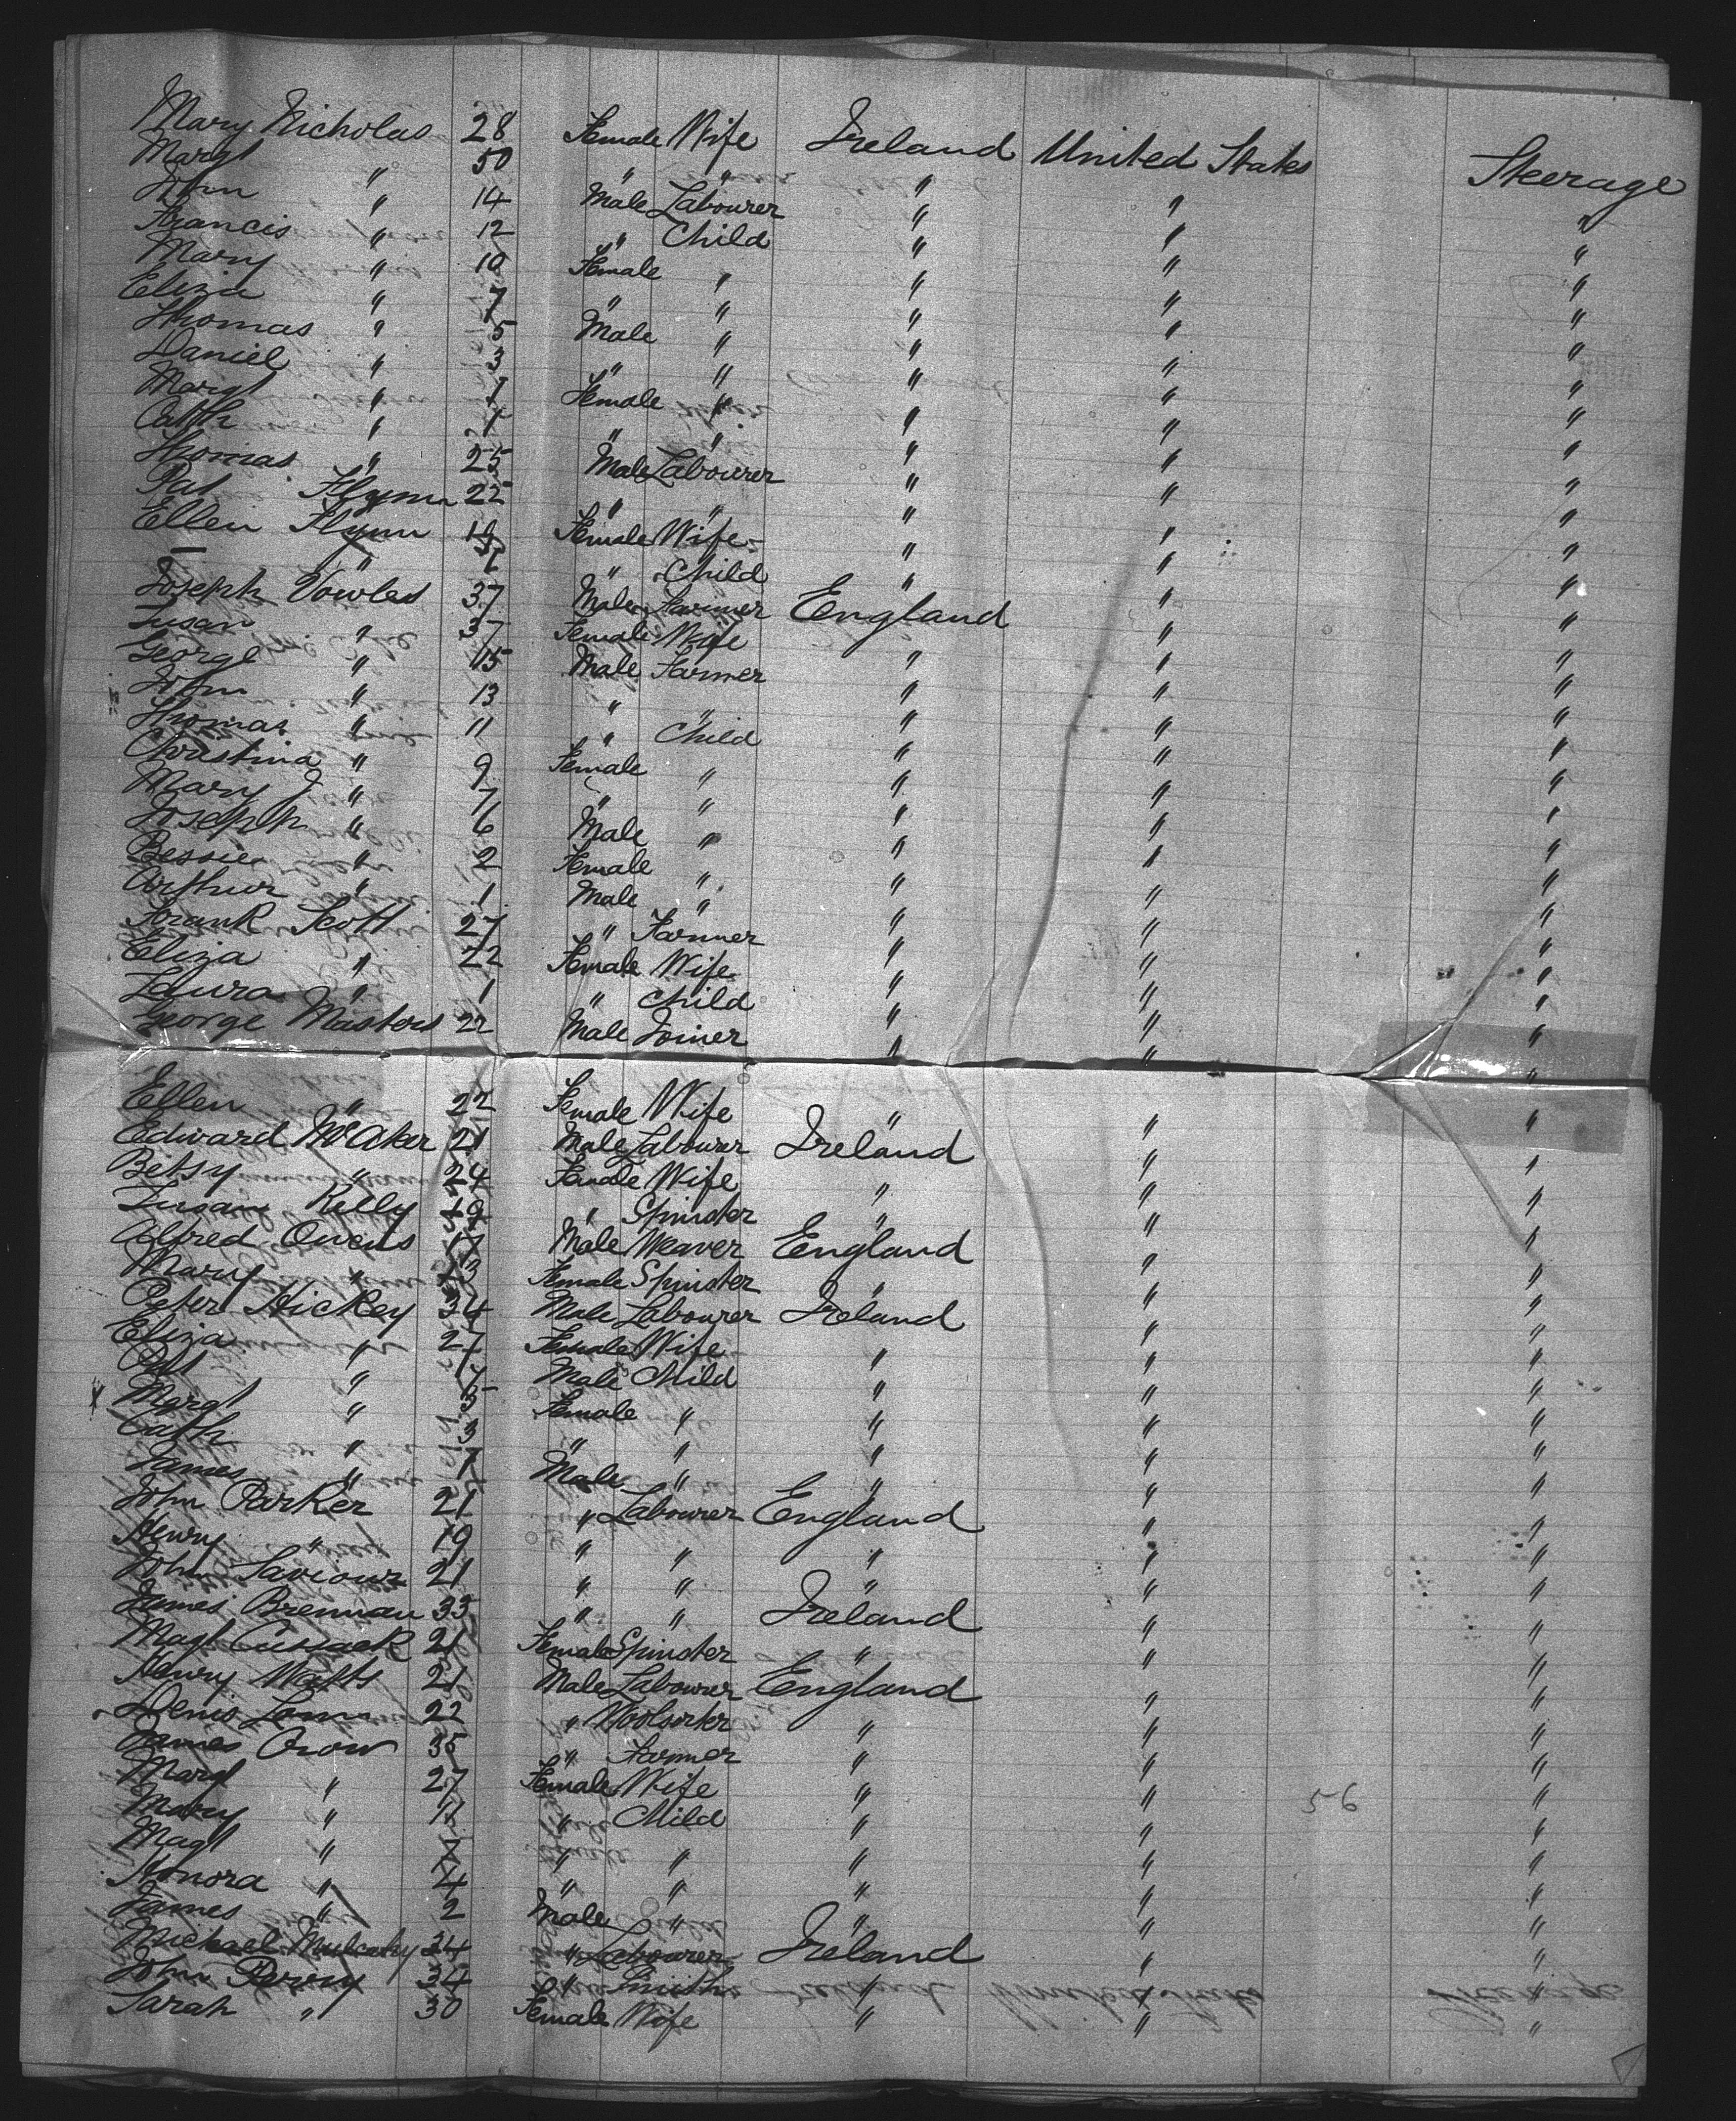 Mary Nicholas 28 Female Wife Ireland United States Steerage
Margt " 50 " " " " "
John " 14 Male Labourer " " "
Francis " 12 " Child " " "
Mary " 10 Female " " " "
Eliza " 7 " " " " "
Thomas " 5 Male " " " "
Daniel " 3 " " " " "
Margt " 1 Female " " " "
Cath " 1 " " " " "
Thomas " 25 Male Labourer " " "
Pat Flynn 22 " " " " "
Ellen Flynn 19 Female Wife " " "
— " 1 " Child " " "
Joseph Vowles 37 Male Farmer England " "
Susan " 37 Female Wife " " "
George " 15 Male Farmer " " "
John " 13 " " " " "
Thomas " 11 " Child " " "
Christina " 9 Female " " " "
Mary J " 7 " " " " "
Joseph " 6 Male " " " "
Bessie " 2 Female " " " "
Arthur " 1 Male " " " "
Frank Scott 27 " Farmer " " "
Eliza " 22 Female Wife " " "
Laura " 1 " Child " " "
George Masters 22 Male Joiner " " "
Ellen " 22 Female Wife " " "
Edward McAker 21 Male Labourer Ireland " "
Betsy " 24 Female Wife " " "
Susan Kelly 19 " Spinster " " "
Alfred Owens 17 Male Weaver England " "
Mary " Female Spinster " " "
Peter Hickey 34 Male Labourer Ireland " "
Eliza " 27 Female Wife " " "
Pat " Male Child " " "
Margt " 5 Female " " " "
Cath " 3 " " " " "
James " 1 Male " " " "
John Parker 21 " Labourer England " "
Henry " 19 " " " " "
John Saviour 21 " " " " "
James Brennan 33 " " Ireland " "
Magt Cusack 21 Female Spinster " " "
Henry Watts 21 Male Labourer England " "
Denis 22 " Woolsorter " " "
James Crow 35 " Farmer " " "
Margt " 27 Female Wife " " "
Mary " 11 " Child " " "
Magt " 7 " " " " "
Honora " 4 " " " " "
James " 2 Male " " " "
Michael Mulcahy 24 " Labourer Ireland " "
John Perry 34 " Smith " " "
Sarah " 30 Female Wife " " "
56